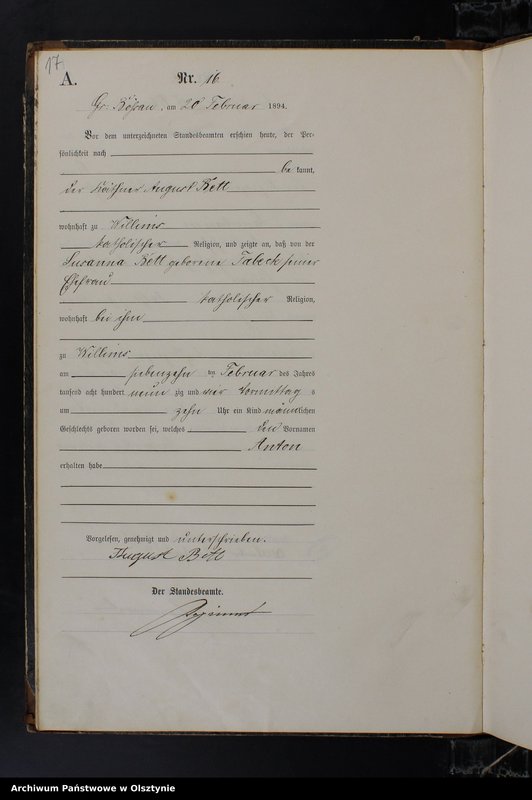 17
A.
Nr. 16
Gr. Kößau, am 20 Februar 1894.
Vor dem unterzeichneten Standesbeamten erschien heute, der Per-
sönlichkeit nach
be kannt,
der Käthner August Bett
wohnhaft zu Willims
katholischer Religion, und zeigte an, daß von der
Susanna Bett geborene Fabeck seiner
Ehefrau
katholischer Religion,
wohnhaft bei ihm
zu Willims
am siebenzehn ten Februar des Jahres
tausend acht hundert neun zig und vier Vormittag s
um zehn Uhr ein Kind männlichen
Geschlechts geboren worden sei, welches den Vornamen
Anton
erhalten habe
Vorgelesen, genehmigt und unterschrieben.
August Bett
Der Standesbeamte.
Archiwum Państwowe w Olsztynie